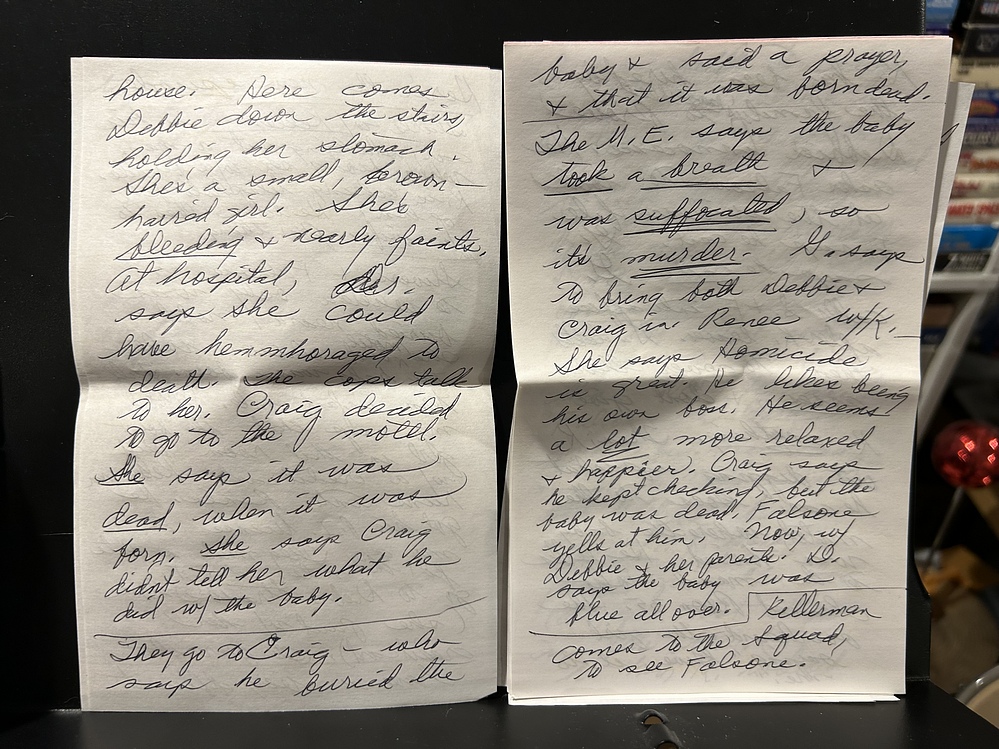 house. Here comes
Debbie down the stairs,
holding her stomach.
She's a small, brown-
haired girl. She's
bleeding & nearly faints.
At hospital, Dr.
says she could
have hemmhoraged to
death. The cops talk
to her. Craig decided
to go to the motel.
She says it was
dead, when it was
born. She says Craig
didn't tell her what he
did w/ the baby.
They go to Craig - who
says he buried the
baby & said a prayer,
& that it was born dead.
The M.E. says the baby
took a breath &
was suffocated, so
it's murder. G. says
to bring both Debbie &
Craig in. Renee w/K.
She says Homicide
is great. He likes being
his own boss. He seems
a lot more relaxed
& happier. Craig says
he kept checking, but the
baby was dead. Falsone
yells at him. Now, w/
Debbie & her parents. D.
says the baby was
blue all over. Kellerman
comes to the Squad,
to see Falsone.